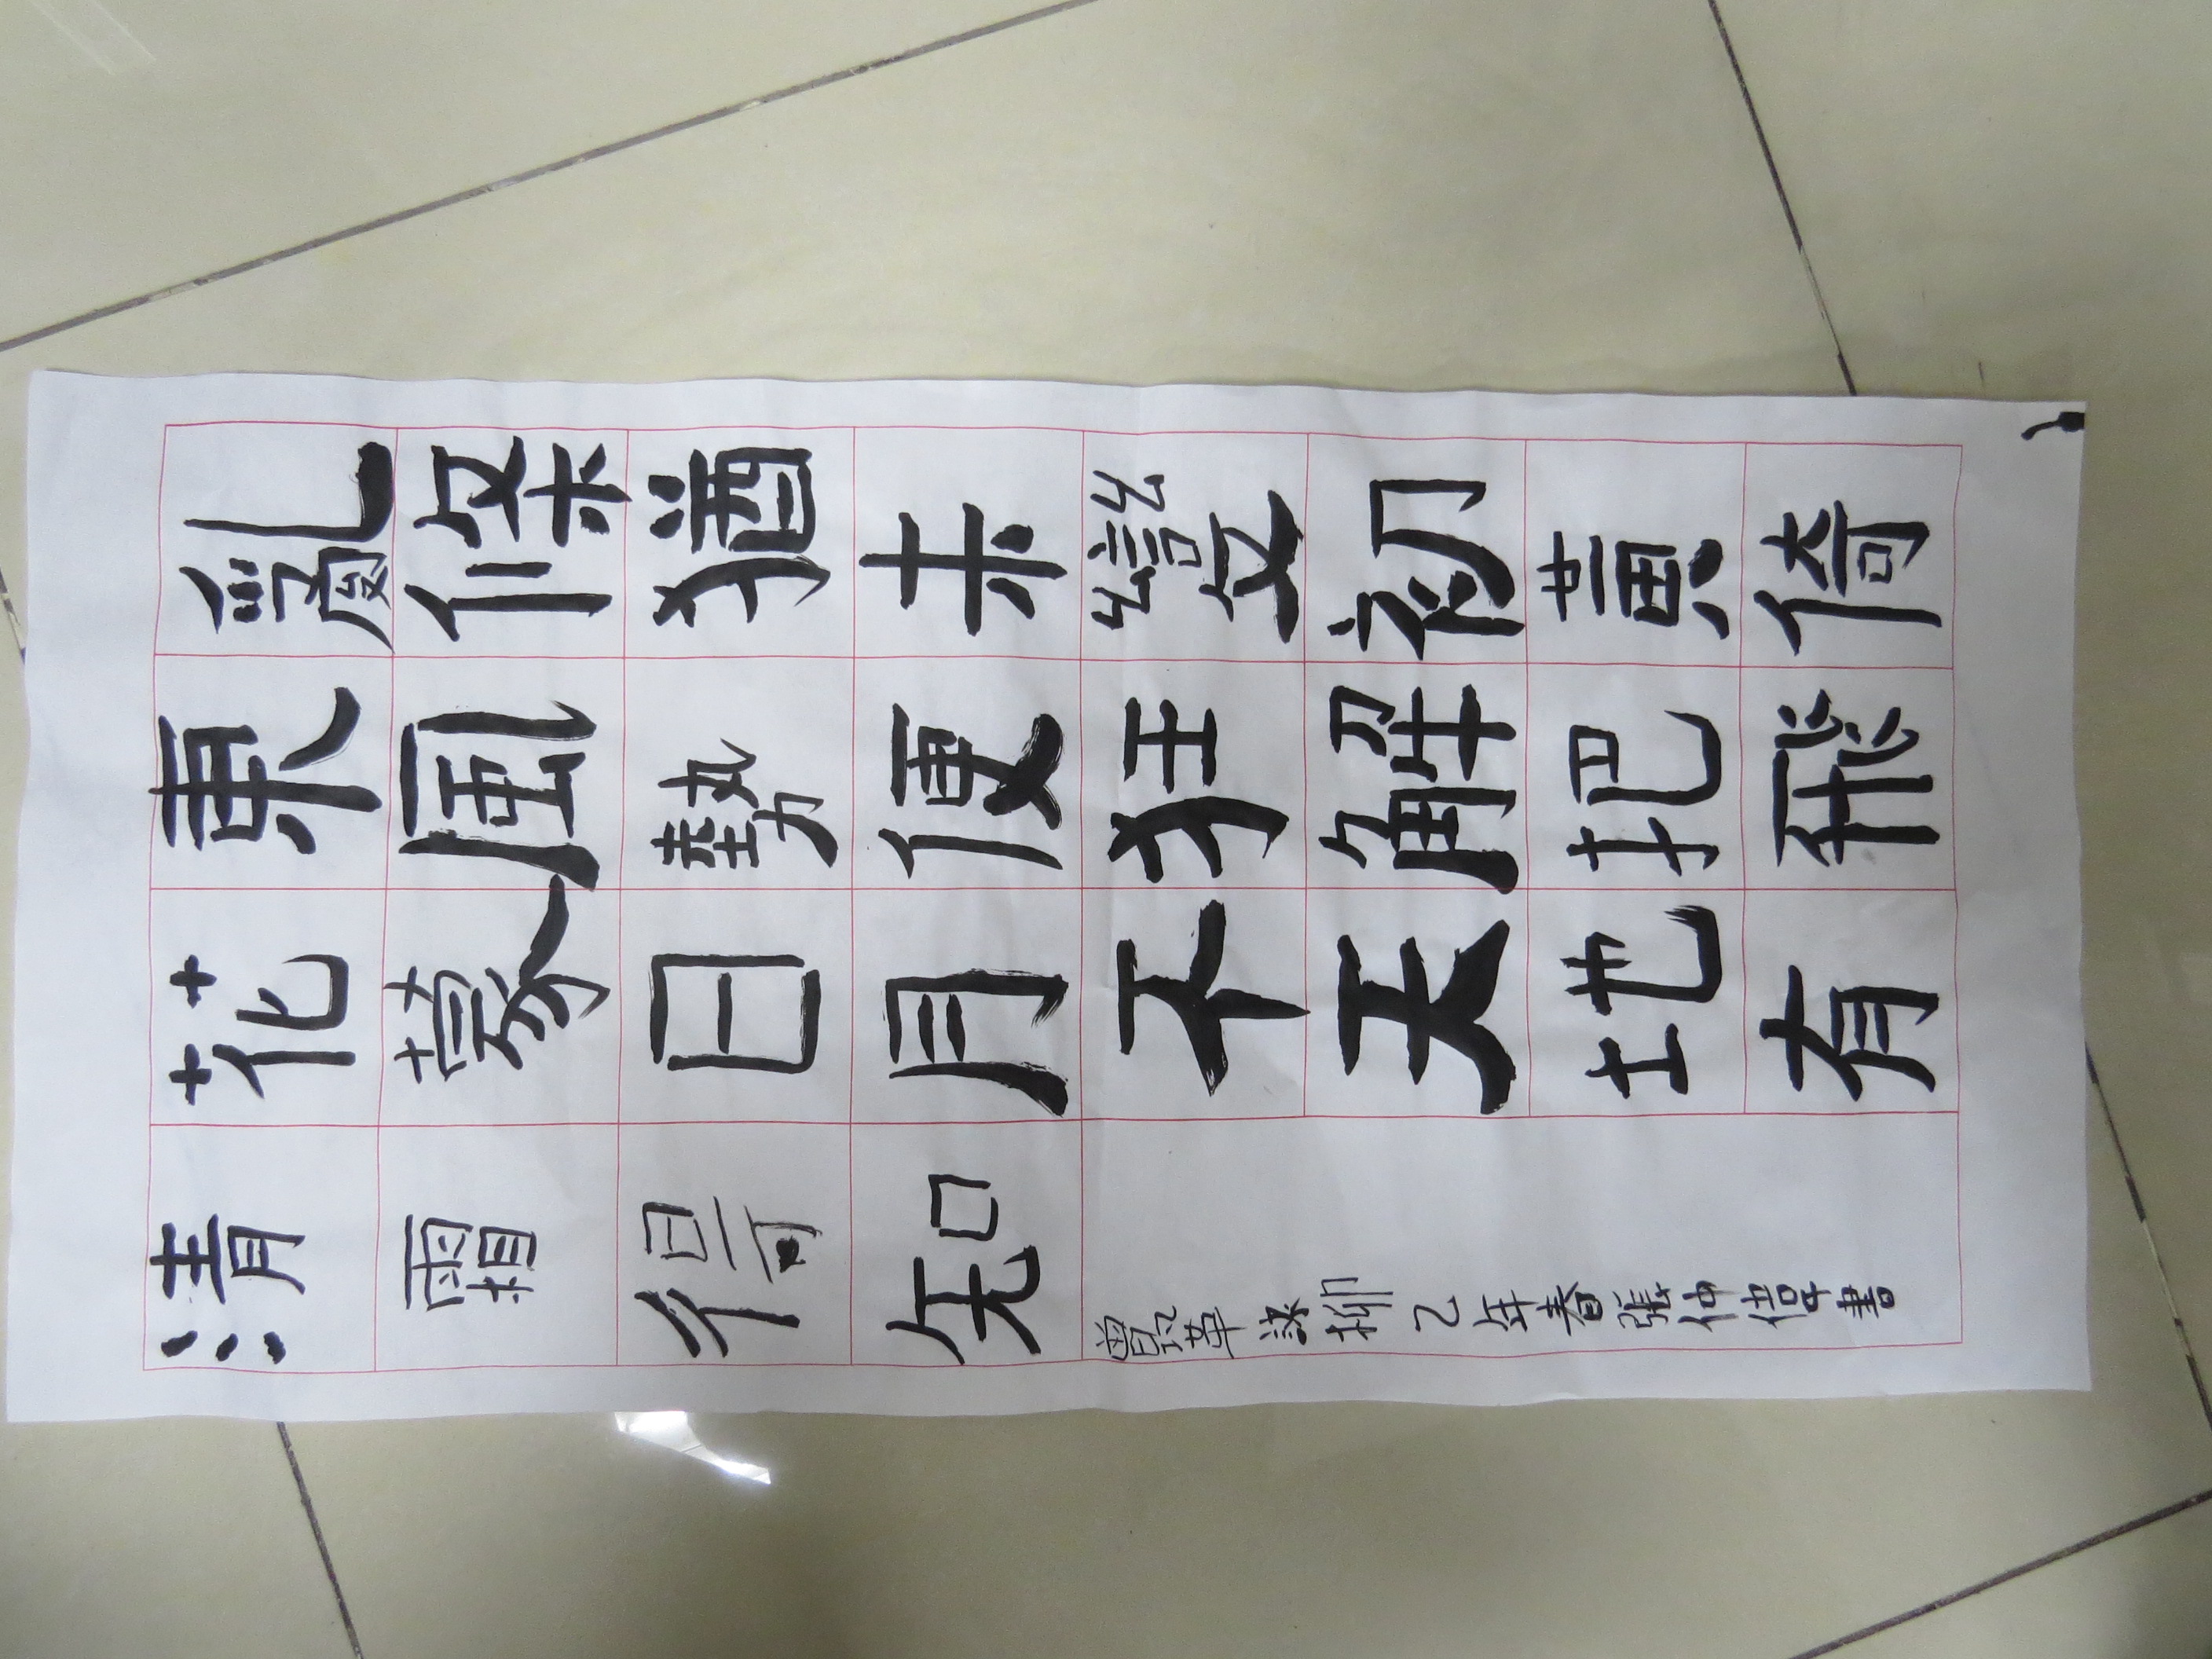 亂條猶未變初黃倚
東風勢便狂解把飛
花蒙日月不天地有
清霜得知
曾鞏詠柳 乙年春張仲書